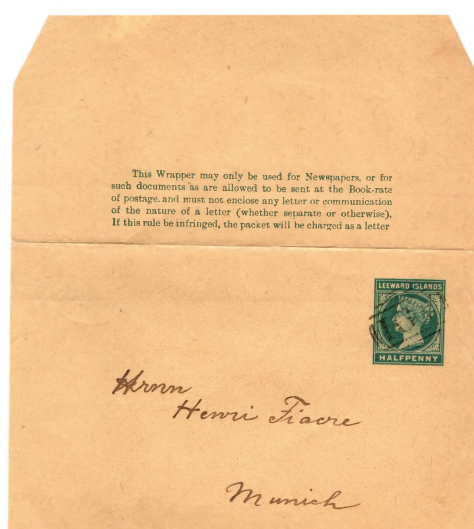 This Wrapper may only be used for Newspapers, or for
such documents as are allowed to be sent at the Book-rate
of postage, and must not enclose any letter or communication
of the nature of a letter (whether separate or otherwise).
If this rule be infringed, the packet will be charged as a letter
LEEWARD ISLANDS
HALFPENNY
Herrn
Henri Fiacre
Munich